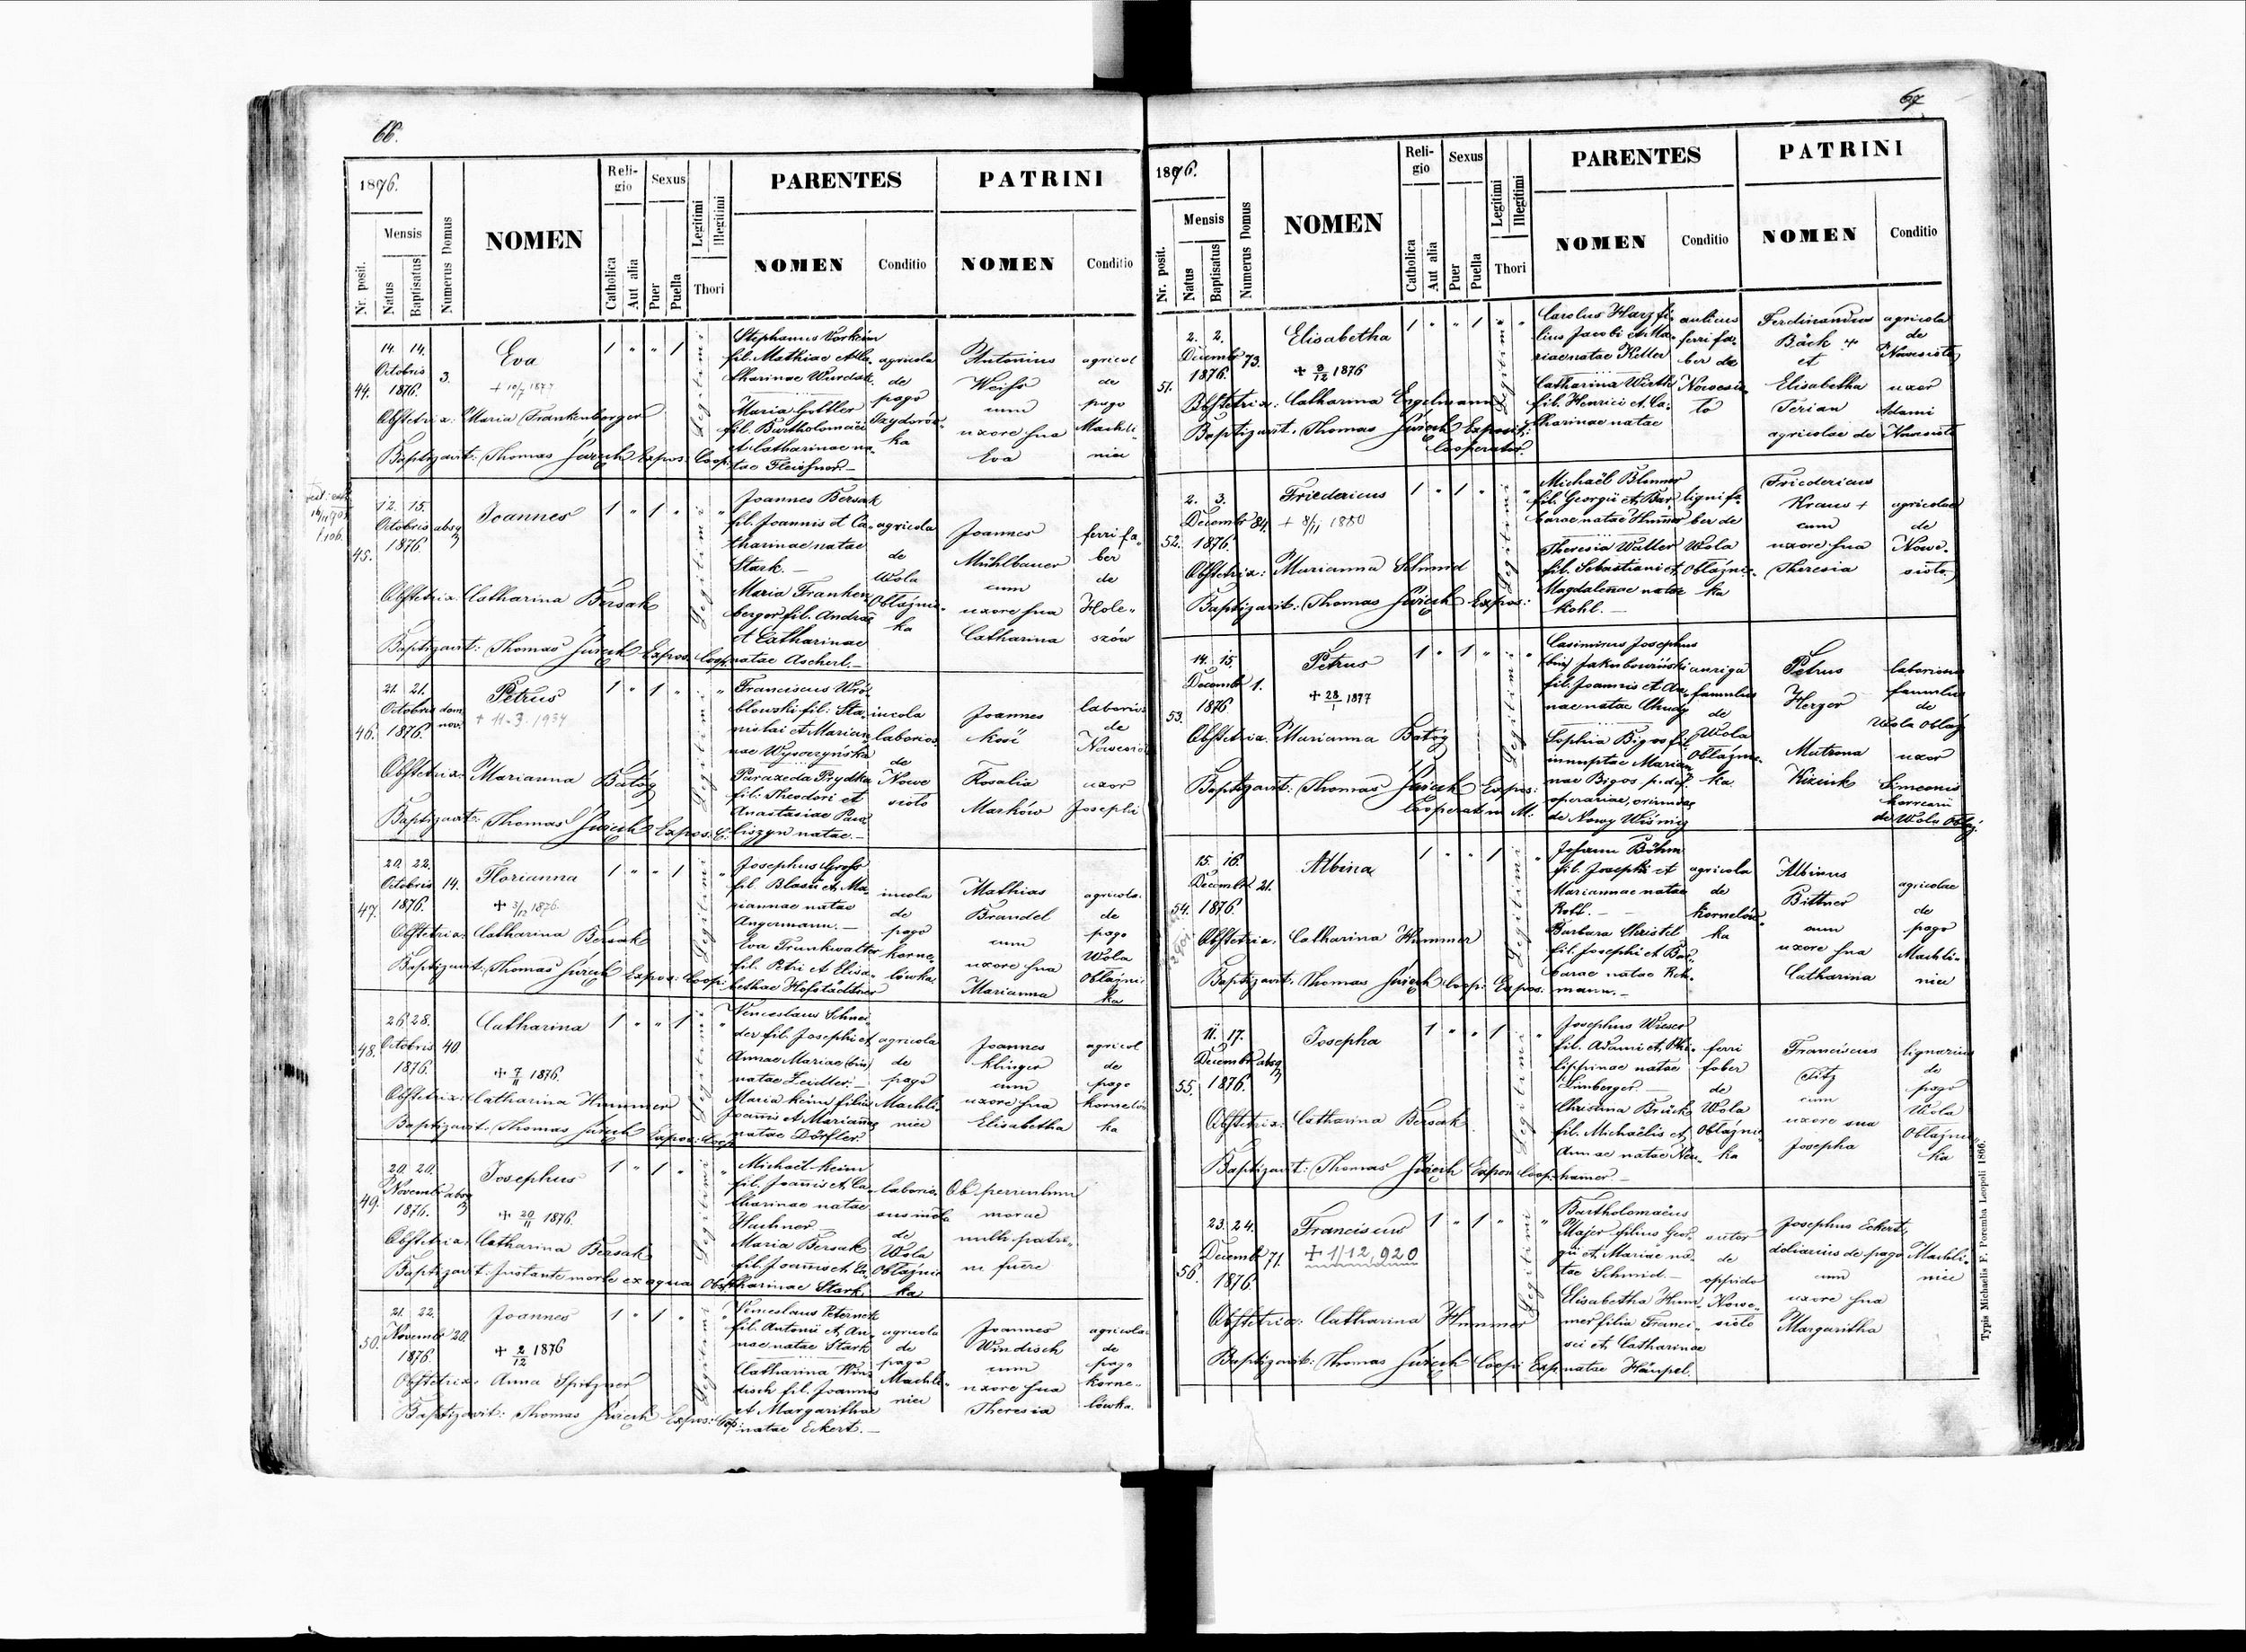 66.
1876.
Nr. posit.
Mensis
Natus
Baptisatus
Numerus Domus
NOMEN
Religio
Catholica
Aut alia
Sexus
Puer
Puella
Legitimi
Illegitimi
Thori
PARENTES
NOMEN
Conditio
PATRINI
NOMEN
Conditio
44.
14. 14.
Octobris
1876.
3.
Eva
+ 10/7 1877
Obstetrix: Maria Frankenberger
Baptizavit: Thomas Expos: Coop:
Legitimi
Stephanus
fil. Mathiae et Ca-
tharinae
Maria Gottler
fil. Bartholomaei
et Catharinae na-
tae Fleissner. —
agricola
de
pago
Szydorów-
ka
Antonius
Weiss
cum
uxore sua
Eva
agricol
de
pago
Machli-
niec
45.
12. 15.
Octobris
1876.
absq
Joannes
Obstetrix: Catharina Bersak
Baptizavit: Thomas Expos. Coop.
Legitimi
Joannes Bersak
fil. Joannis et Ca-
tharinae natae
Stark. —
Maria Franken-
berger fil. Andreae
et Catharinae
natae Ascherl. —
agricola
de
Wola
Obłaźni-
ka
Joannes
Mühlbauer
cum
uxore sua
Catharina
ferri fa-
ber
de
Hole-
szów
46.
21. 21.
Octobris
1876.
dom.
nov.
Petrus
+ 11. 3. 1934
Obstetrix: Marianna Batóg
Baptizavit: Thomas Expos: C.
Legitimi
Franciscus Wró-
blowski fil. Sta-
nislai et Marian-
nae Wysoczyńska
Parazeda Prydka
fil: Theodori et
Anastasiae
natae. —
incola
laborios.
de
Nowe
sioło
Joannes
Kość
Rosalia
Marków
laborios
de
Nowesioł
uxor
Josephi
47.
20. 22.
Octobris
1876.
14.
Florianna
+ 3/12 1876.
Obstetrix: Catharina Bersak
Baptizavit: Thomas Expos: Coop:
Legitimi
Josephus Gross
fil. Blasii et Ma-
riannae natae
Angermann. —
Eva Trunkwalter
fil. Petri et Elisa-
bethae Hofstädtner
incola
de
pago
Korne-
lówka
Mathias
Brandel
cum
uxore sua
Marianna
agricola.
de
pago
Wola
Obłaźni-
ka
48.
26. 28.
Octobris
1876.
40.
Catharina
+ 7/11 1876.
Obstetrix: Catharina Hummer
Baptizavit: Thomas Expos: Coop.
Legitimi
Venceslaus Schnei-
der fil. Josephi et
Annae Mariae (bin)
natae Zeidler. —
Maria Keim filia
Joannis et Mariannae
natae Dörfler.
agricola
de
pago
Machli-
niec
Joannes
Klinger
cum
uxore sua
Elisabetha
agricol
de
pago
Kornelów
ka
49.
20. 20.
Novemb
1876.
absq
Josephus
+ 20/11 1876.
Obstetrix: Catharina Bersak
Baptizavit: Instante morte ex aqua Obst.
Legitimi
Michaël Keim
fil. Joannis et Ca-
tharinae natae
Wachner
Maria Bersak
fil. Joannis et Ca-
tharinae Stark.
laborio-
sus incola
de
Wola
Obłaźni-
ka
Ob
morae
nulli patri-
ni fuere
50.
21. 22.
Novemb
1876.
20.
Joannes
+ 2/12 1876
Obstetrix: Anna Spitzner
Baptizavit: Thomas Expos: Coop:
Legitimi
Venceslaus Peternek
fil. Antonii et An-
nae natae Stark
Catharina Win-
disch fil. Joannis
et Margarithae
natae Eckert. —
agricola
de
pago
Machli-
niec
Joannes
Windisch
cum
uxore sua
Theresia
agricola
de
pago
Korne-
lówka.
67
1876.
Nr. posit.
Mensis
Natus
Baptisatus
Numerus Domus
NOMEN
Religio
Catholica
Aut alia
Sexus
Puer
Puella
Legitimi
Illegitimi
Thori
PARENTES
NOMEN
Conditio
PATRINI
NOMEN
Conditio
51.
2. 2.
Decembr
1876.
73.
Elisabetha
+ 8/12 1876
Obstetrix: Catharina Engelmann
Baptizavit: Thomas Exposit:
Cooperator.
Legitimi
Carolus Harz fi-
lius Jacobi et Ma-
riae natae Keller
Catharina Wirth
fil. Henrici et Ca-
tharinae natae
aulicus
ferri fa-
ber de
Nowesio-
ło
Ferdinandus
Bäck
et
Elisabetha
Terian
agricolae de Nowesioło
agricola
de
Nowesioło
uxor
Adami
52.
2. 3.
Decembr
1876.
84.
Friedericus
+ 8/11 1880
Obstetrix: Marianna Schmid
Baptizavit: Thomas Expos:
Legitimi
Michaël Blumer
fil. Georgii et Bar-
barae natae Hummer
Theresia Walter
fil. Sebastiani et
Magdalenae natae
Kohl. —
ligni fa-
ber de
Wola
Obłaźni-
ka
Friedericus
Kraus +
cum
uxore sua
Theresia
agricolae
de
Nowe-
sioło
53.
14. 15.
Decembr
1876
1.
Petrus
+ 28/1 1877
Obstetrix: Marianna Batóg
Baptizavit: Thomas Expos:
Cooperat in M:
Legitimi
Casimirus Josephus
(bin) Jakubowiński
fil. Joannis et An-
nae natae
Sophia Bigos fil.
innuptae Marian-
nae Bigos p. def.
operariae, oriunda
de Nowy Wiśnicz
auriga
famulus
de
Wola
Obłaźni-
ka
Petrus
Herzer
Matrona
Kizink
laborious
famulus
de
Wola Obłaź
uxor
Simeonis
de Wola Obłaź.
54.
15. 16.
Decembr
1876.
21.
Albina
Obstetrix: Catharina Hummer
Baptizavit: Thomas Coop: Expos.
Legitimi
Johann Böhm
fil. Josephi et
Mariannae natae
Barbara Christel
fil. Josephi et Bar-
barae natae Rek-
mann. —
agricola
de
Kornelów-
ka
Albinus
Bittner
cum
uxore sua
Catharina
agricolae
de
pago
Machli-
niec
55.
11. 17.
Decembr
1876.
absq
Josepha
Obstetrix: Catharina Bersak
Baptizavit: Thomas Expon Coop:
Legitimi
Josephus Wieser
fil. Adami et Phi-
lippinae natae
Limberger. —
Christina Brück
fil. Michaëlis et
Annae natae Neu-
hamer —
ferri
faber
de
Wola
Obłaźni-
ka
Franciscus
Titz
cum
uxore sua
Josepha
lignarius
de
pago
Wola
Obłaźni-
ka
56.
23. 24.
Decembr
1876.
71.
Franciscus
+ 1/12 920
Obstetrix: Catharina Hummer
Baptizavit: Thomas Coop: Exp.
Legitimi
Bartholomaëus
Majer filius Geor-
gii et Mariae na-
tae Schmid. —
Elisabetha Hum-
mer filia Franci-
sci et Catharinae
natae Häupel.
sutor
de
oppido
Nowe-
sioło
Josephus Eckert,
doliarius de pago Machli-
cum niec
uxore sua
Margaritha
Typis Michaelis F. Poremba Leopoli 1866.